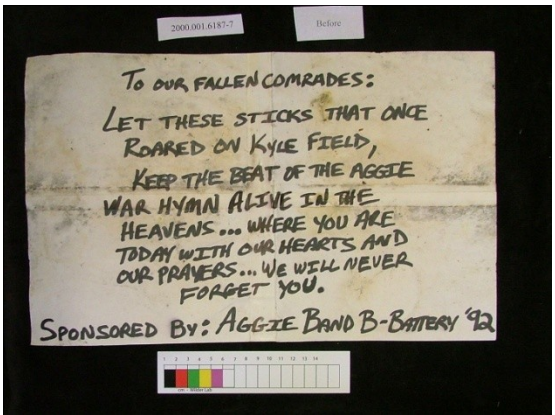 2000.001.6187-7
Before
TO OUR FALLEN COMRADES:
LET THESE STICKS THAT ONCE
ROARED ON KYLE FIELD,
KEEP THE BEAT OF THE AGGIE
WAR HYMN ALIVE IN THE
HEAVENS... WHERE YOU ARE
TODAY WITH OUR HEARTS AND
OUR PRAYERS... WE WILL NEVER
FORGET YOU.
SPONSORED BY: AGGIE BAND B-BATTERY '92
1 2 3 4 5 6 7 8 9 10 11 12 13 14